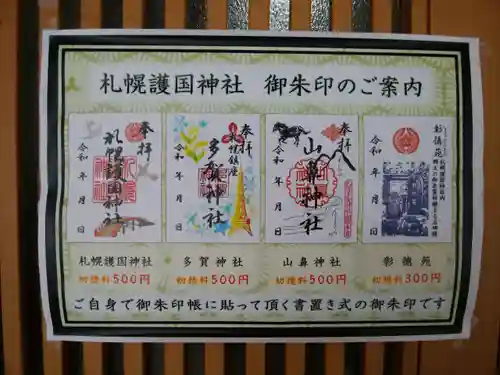 札幌護国神社 御朱印のご案内
奉拝
札幌護国神社
令和 年 月 日
奉拝
札幌鎮座
多賀神社
令和 年 月 日
奉拝
山鼻神社
令和 年 月 日
彰徳苑
令和 年 月 日
札幌護国神社
初穂料500円
多賀神社
初穂料500円
山鼻神社
初穂料500円
彰徳苑
初穂料300円
ご自身で御朱印帳に貼って頂く書置き式の御朱印です